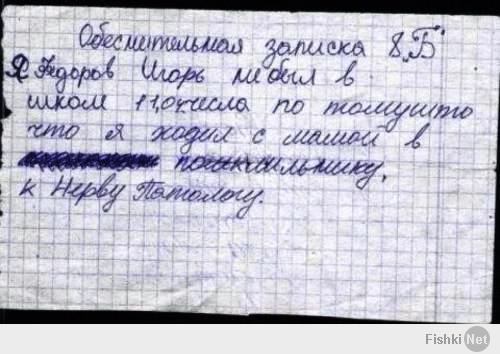 Обеснительная записка 8 „Б"
Я Федоров Игорь не был в
школ 11,04 числа по томушто
что я ходил с мамой в
к Нерву Патологу.
Fishki.Net